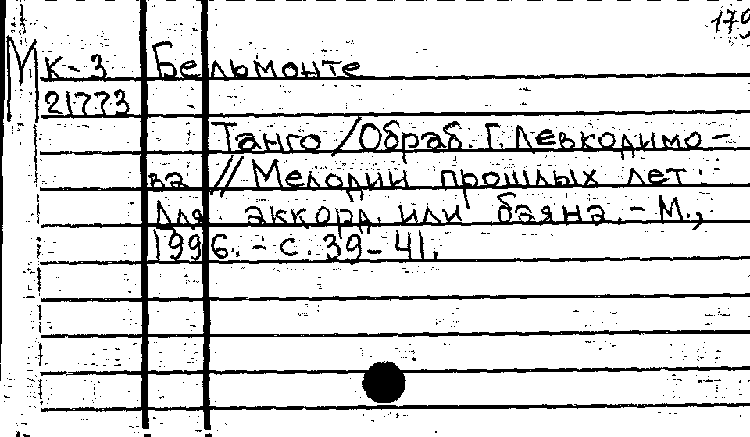 179
МК-3 Бельмонте
21773
Танго / Обраб. Г. Левкодимо-
ва // Мелодии прошлых лет:
Для аккорд. или баяна. - М.,
1996. - с. 39-41.